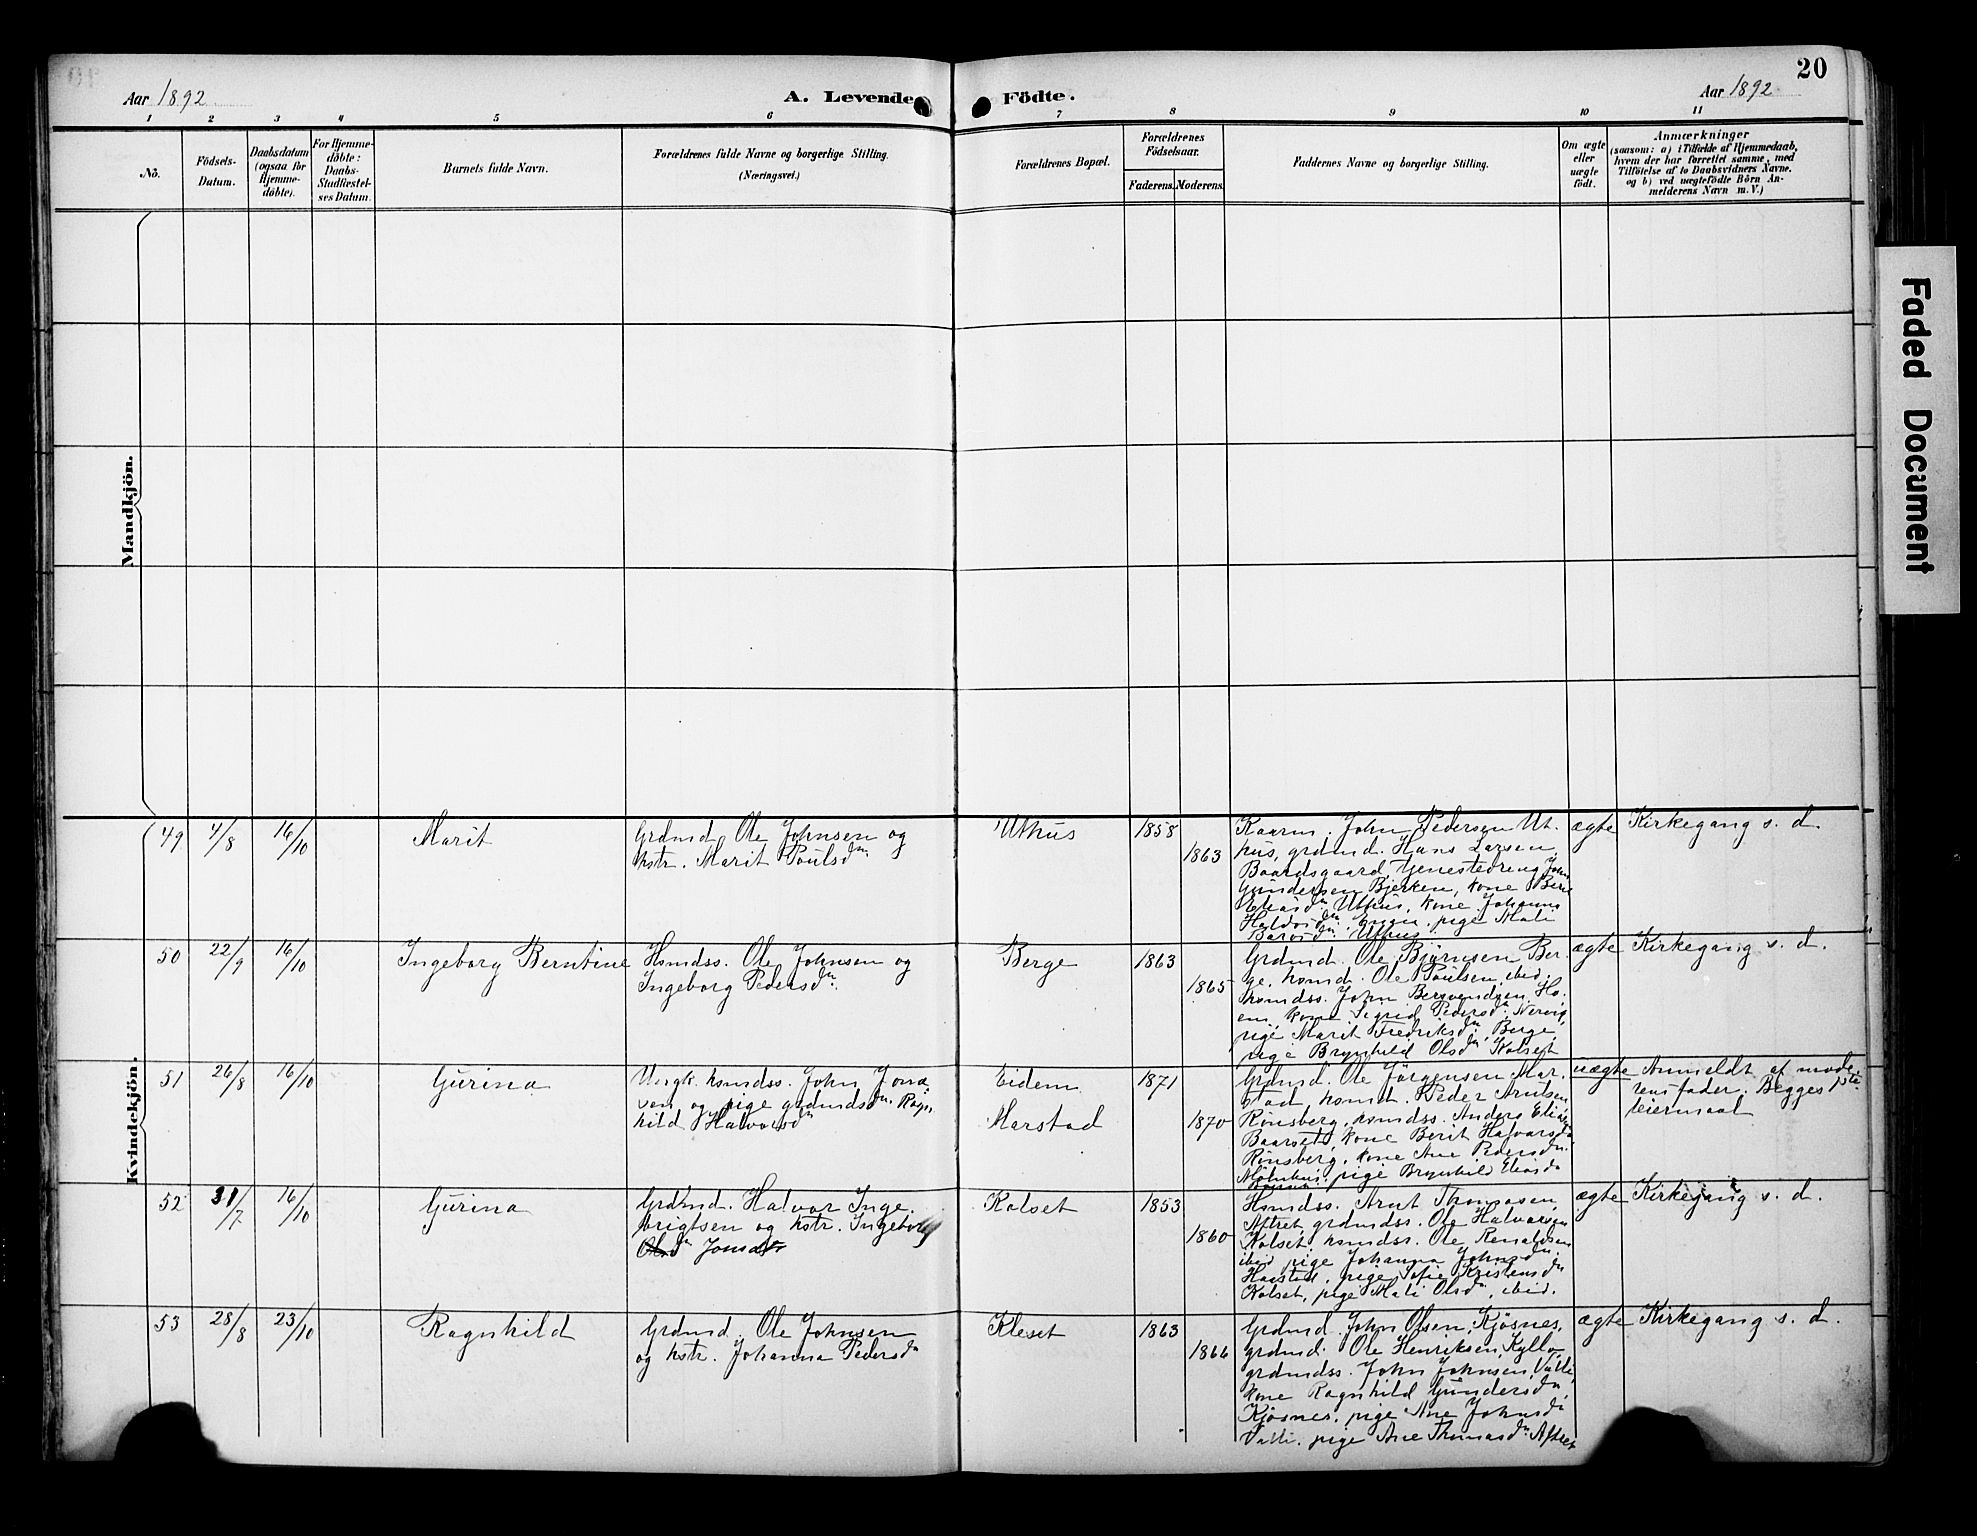 20
Aar 1892
A. Levende Födte.
Aar 1892
1 2 3 4 5 6 7 8 9 10 11
No.
Födsels-
Datum.
Daabsdatum
(ogsaa for
Hjemme-
döbte).
For Hjemme-
döbte:
Daabs-
Stadfæstel-
ses Datum.
Barnets fulde Navn.
Forældrenes fulde Navne og borgerlige Stilling.
(Næringsvei.)
Forældrenes Bopæl.
Forældrenes
Födselsaar.
Faderens. Moderens.
Faddernes Navne og borgerlige Stilling.
Om ægte
eller
uægte
født.
Anmærkninger
(saasom: a) i Tilfælde af Hjemmedaab,
hvem der har forrettet samme, med
Tilföielse af to Daabsvidners Navne.
og b) ved uægtefödte Börn An-
melderens Navn m. V.)
Mandkjön.
Kvindekjön.
49 4/8 16/10 Marit
Grdmd. Ole Johnsen og
kstr. Marit Poulsdn.
Uthus 1858
1863
Kaarm. John Pedersen Ut-
hus, grdmd. Hans Larsen
Baardsgaard, tjenestedreng John
Gundersen Bjerken, kone Berit
Eliasdn Uthus, kone Johanna
Haldosdn, pige Mali
Uthus
ægte Kirkegang s. d.
50 22/9 16/10 Ingeborg Berntine
Hsmdss. Ole Johnsen og
Ingeborg Pedersdn.
Berge 1863
1865
Grdmd. Ole Bjørnsen Ber-
ge, hsmd. Ole Poulsen ibid.
hsmdss. John Bersvendsen Ho-
em, kone Sigrid Pedersdn Nervig,
pige Marit Fredriksdn, Berge,
pige Brynhild Olsdn Kolset
ægte Kirkegang s. d.
51 26/8 16/10 Gurina
Ungk. hsmdss. John Jona-
sen og pige grdmdsdn. Ragn-
hild Halvorsdn
Eidem
Marstad
1871
1870
Grdmd. Ole Jørgensen Mar-
stad, hsmd. Peder Arntsen
Rønsberg, hsmdss. Anders Eliasen
Baarset, kone Berit Halvorsdn
Rønsberg, kone Ane Pedersdn
pige Brynhild Eliasdn
uægte Anmeldt af mode-
rens fader. Begges 1ste
leiermaal
52 31/7 16/10 Gurina
Grdmd. Halvor Inge-
brigtsen og kstr. Ingeborg
Olsdn Jonsdn
Kolset 1853
1860
Hsmdss. Arnt Thomasen
Aftret, grdmdss. Ole Halvorsen
Kolset, hsmdss. Ole Renaldsen
ibid, pige Johanna Johnsdn
Harstad, pige Sofie Kristensdn
Kolset, pige Mali Olsdn, ibid.
ægte Kirkegang s. d.
53 28/8 23/10 Ragnhild
Grdmd. Ole Johnsen
og kstr. Johanna Pedersdn
Kleset 1863
1866
Grdmd. John Olsen, Kjøsnes,
grdmd. Ole Henriksen, Kyllo,
grdmdss. John Johnsen, Valli,
kone Ragnhild Gundersdn,
Kjøsnes, pige Ane Johnsdn
Valli, pige Ane Thomasdn Aftret
ægte Kirkegang s. d.
Faded Document